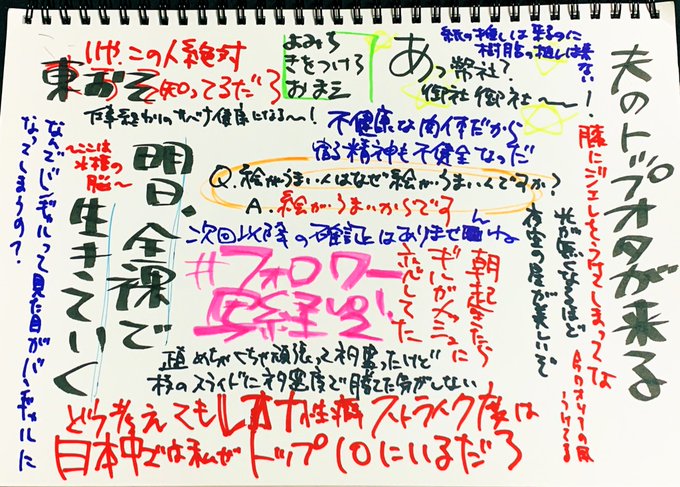 いや、この人絶対
東おそ知ってるだろ
よみち
きをつけろ
おまえ
あっ弊社?
御社御社〜〜
紙の推しは来るのに
樹脂の推しは来ない!
夫のトップオタが来る
不健康な肉体だから
精神も不健全なっだ
Q.絵がうまい人はなぜ絵がうまいんですか?
A.絵がうまいからです
次回以降の確証はありませんね
なんでビジギャルって見た目がバンギャルに
なってしまうの?
〜ここは
水槽の
脳〜
明日、全裸で
生きていく
#フォロワー
朝起きたら
ギルガメッシュに
恋してた
光が無くなるほど
夜空の星が美しいで
膝にジェレをうけてしまってな
直めちゃくちゃ頑張って初霊ったけど
様のスライドに初霊度で勝てた気がしない
どう考えてもレオナ性癖ストライク度は
日本中では私がトップ10にいるだろ